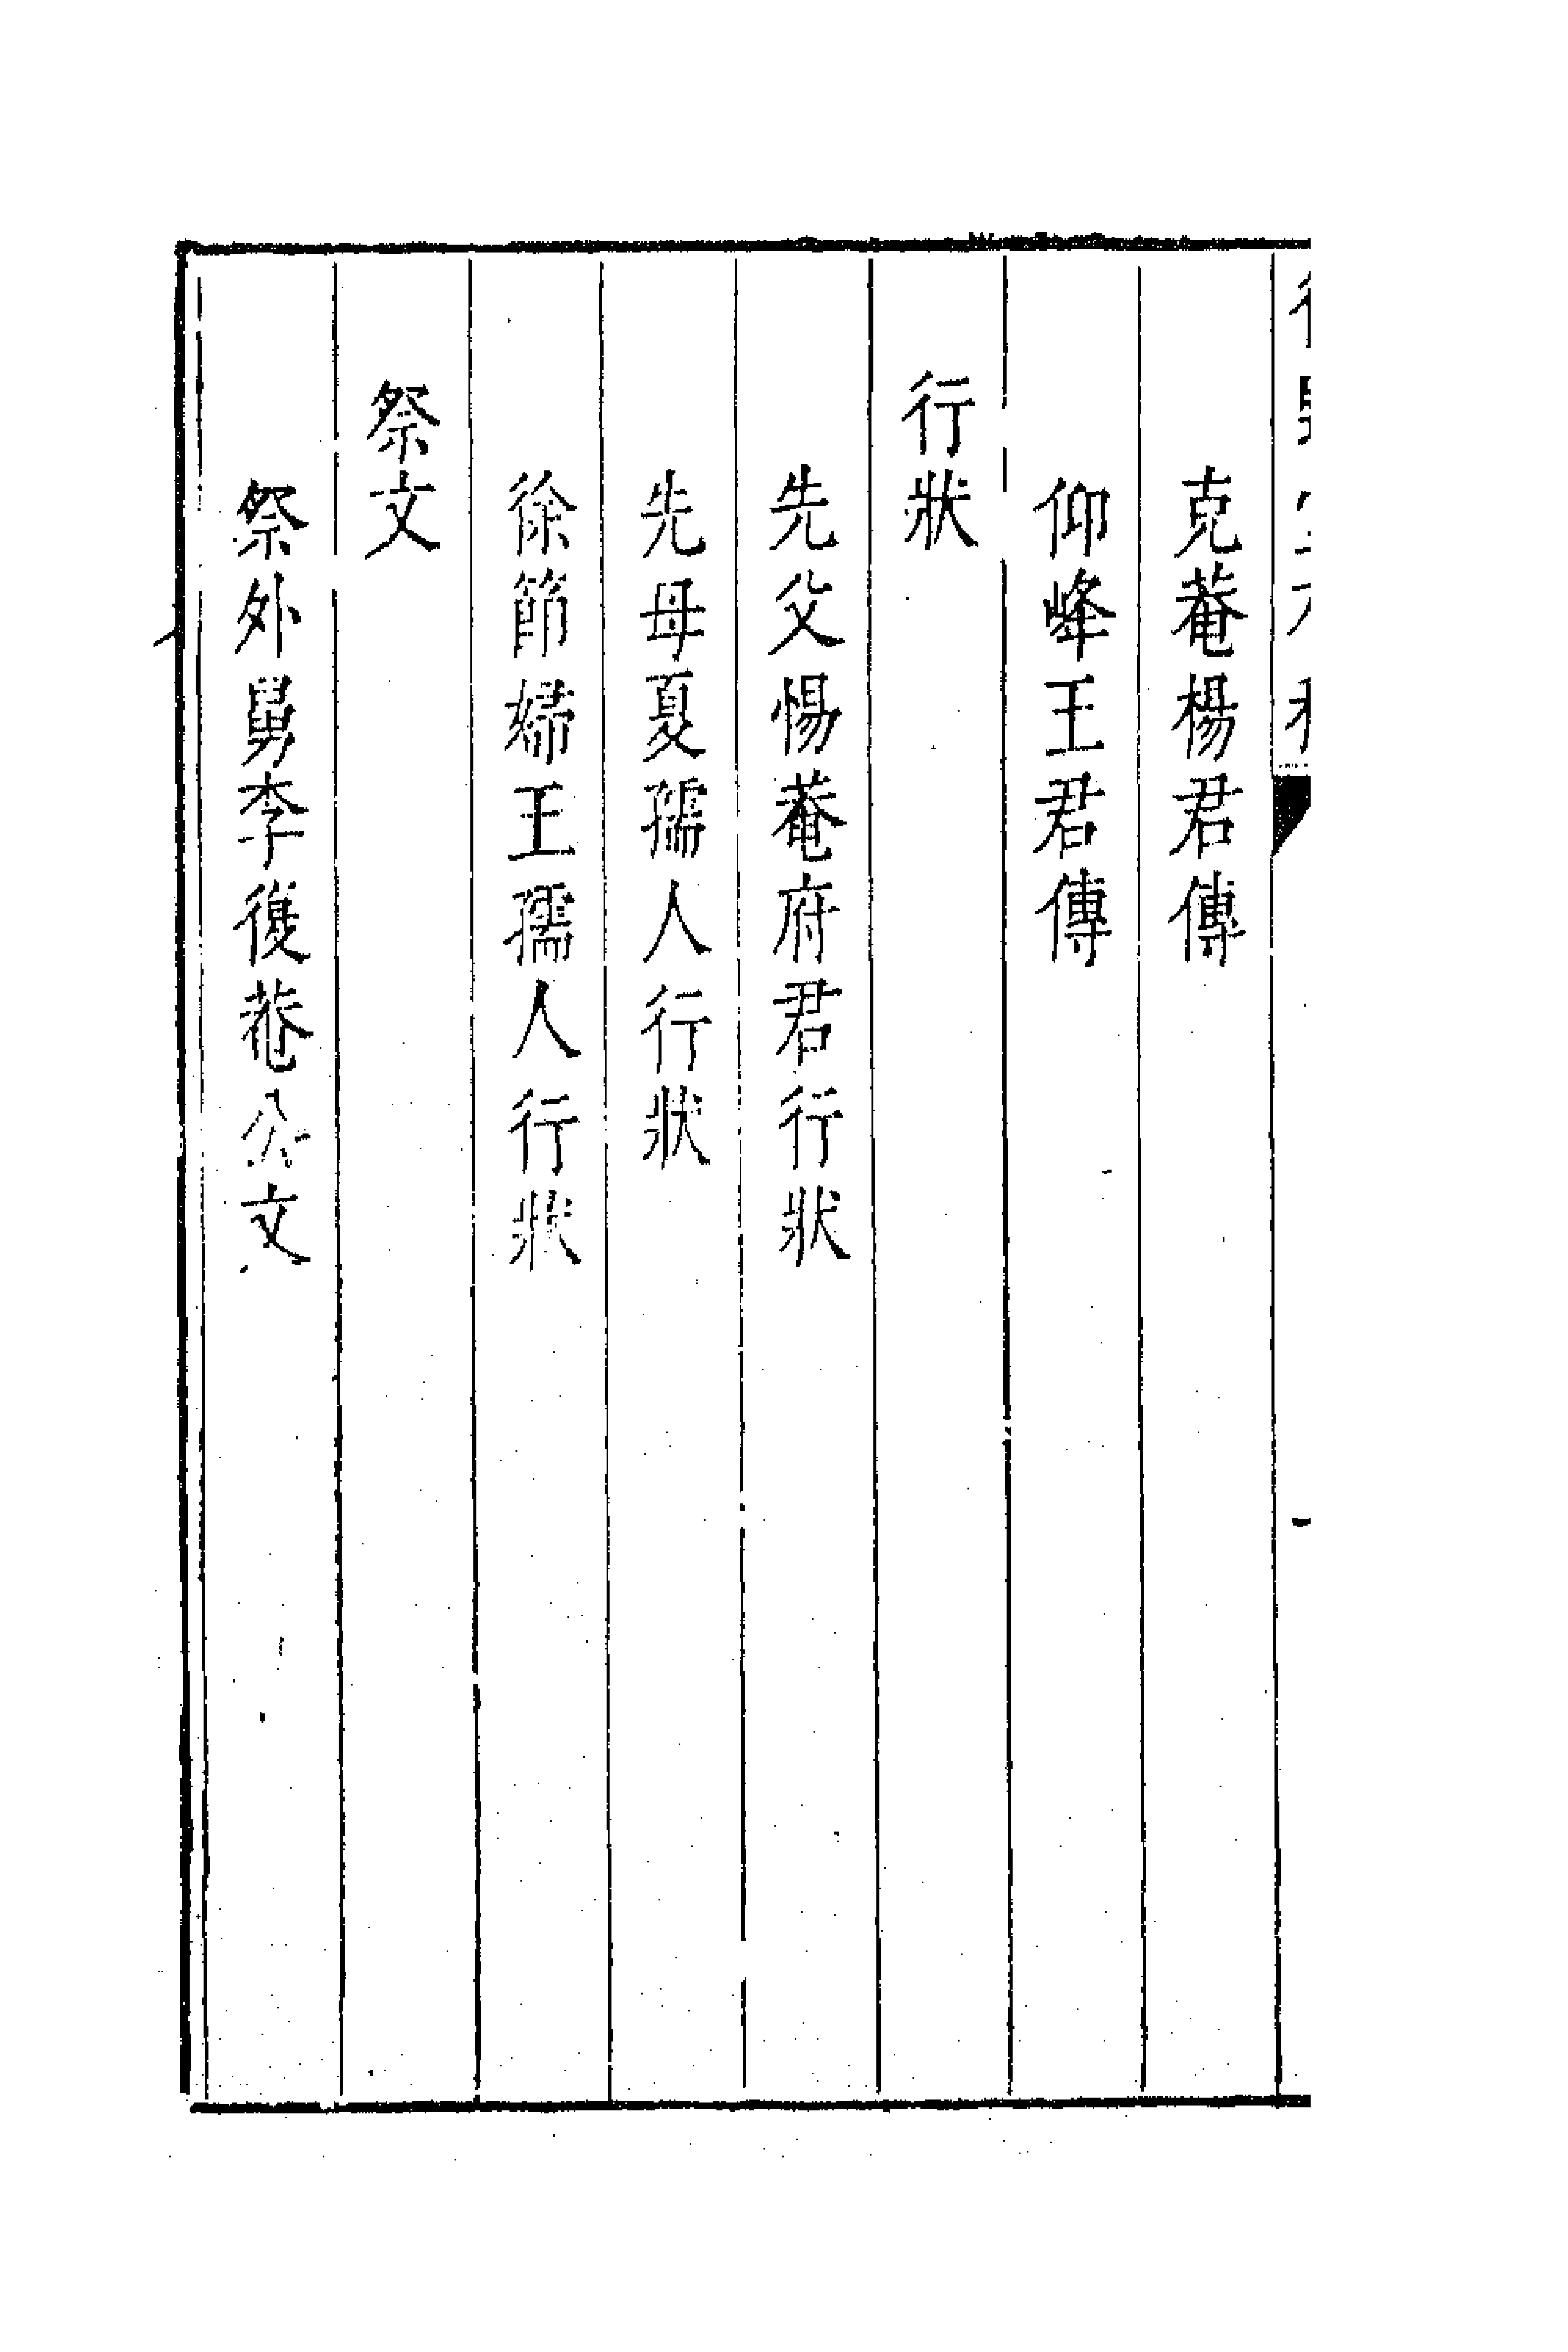 克菴楊君傳
仰峰王君傳
行狀
先父惕菴府君行狀
先母夏孺人行狀
徐節婦王孺人行狀
祭文
祭外舅李復菴公文